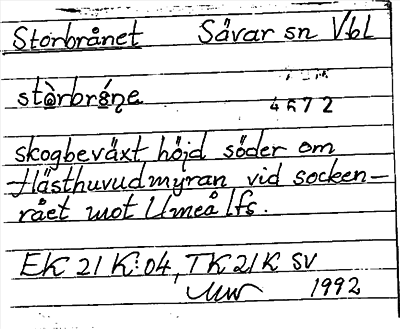 Storbrånet Sävar sn Vbl
stòrbrǻn̥e
4672
skogbeväxt höjd söder om
Hästhuvudmyran vid socken-
rået mot Umeå lfs.
EK 21 K:04, TK 21 K SV
1992